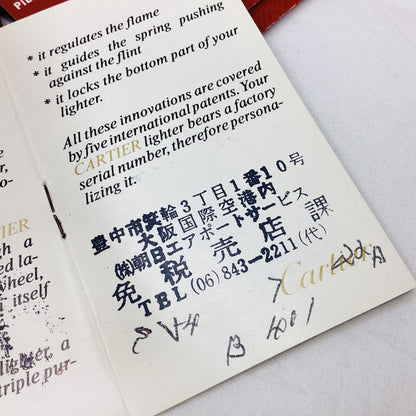 * it regulates the flame
* it guides the spring pushing
against the flint
* it locks the bottom part of your
lighter.
All these innovations are covered
by five international patents. Your
CARTIER lighter bears a factory
serial number, therefore persona-
lizing it.
豊中市箕輪3丁目1番10号
大阪国際空港内
㈱朝日エアポートサービス
免税売店課
TEL (06) 843-2211(代)
Cartier
B 1001
CARTIER
gh a
ed la-
wheel,
itself
and
lighter, a
triple pur-